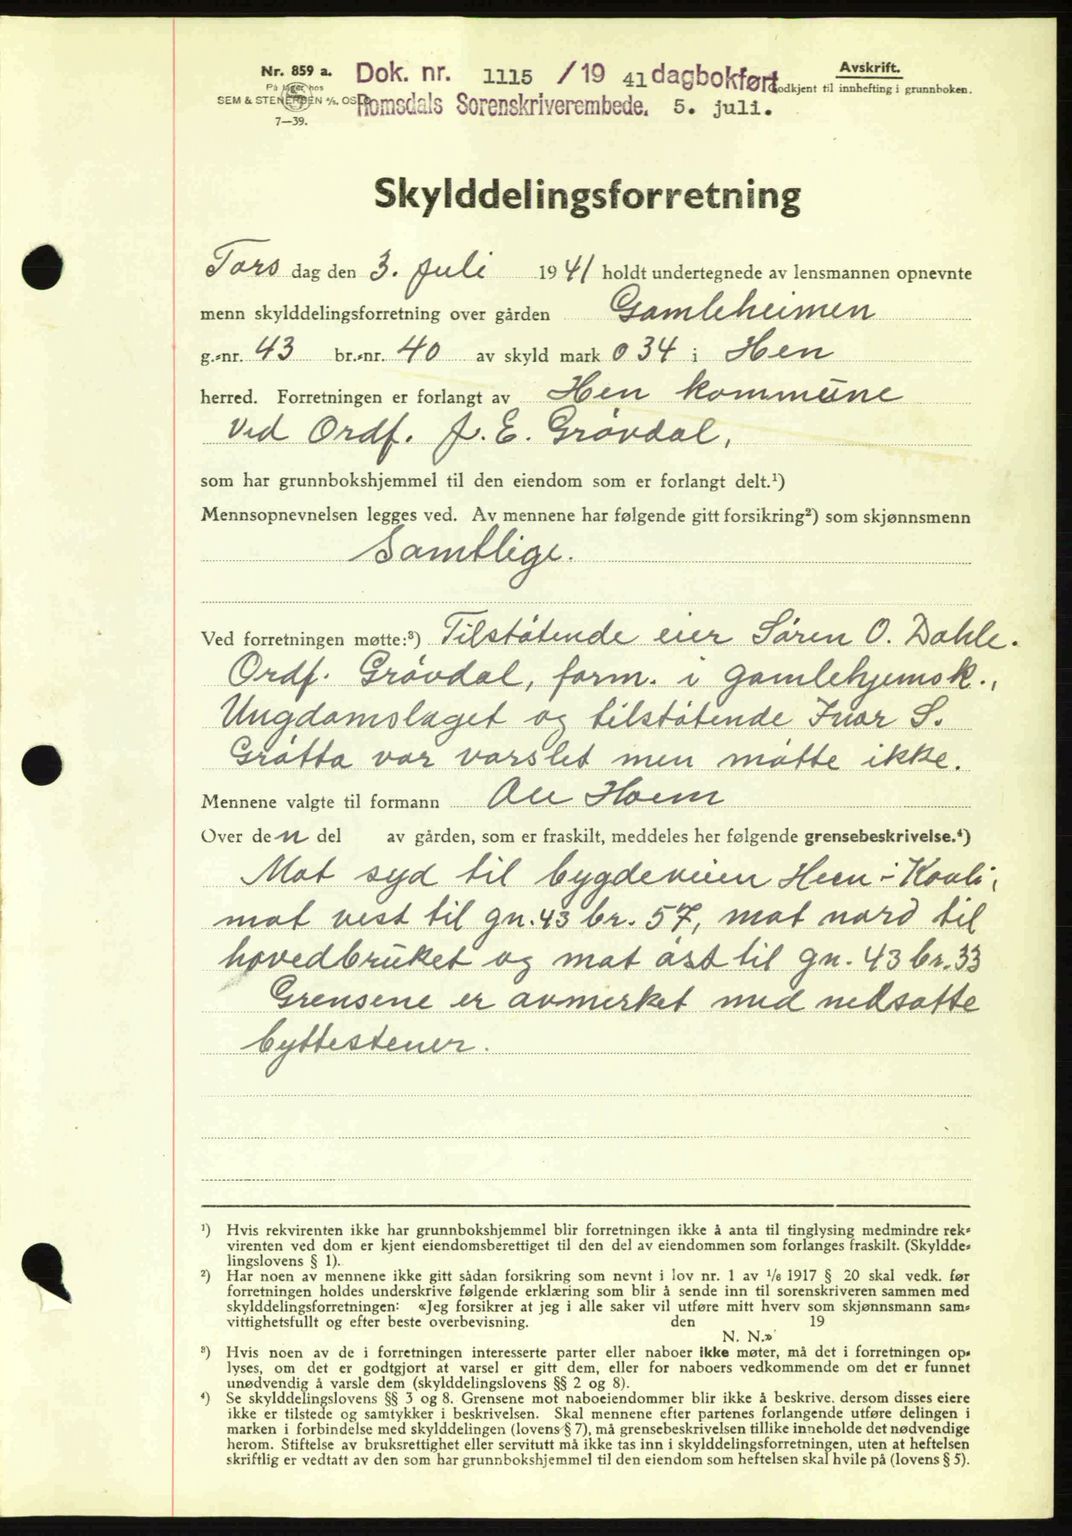 Nr. 859 a.
På lager hos
SEM & STENERSEN A/S, OSLO
7—39.
Dok. nr. 1115 /19 41 dagbokført
Romsdals Sorenskriverembede. 5. juli.
Avskrift.
Godkjent til innhefting i grunnboken.
Skylddelingsforretning
Tors dag den 3. Juli 1941 holdt undertegnede av lensmannen opnevnte
menn skylddelingsforretning over gården Gamleheimen
g.-nr. 43 br.-nr. 40 av skyld mark 0 34 i Hen
herred. Forretningen er forlangt av Hen kommune
ved Ordf. J. E. Grövdal,
som har grunnbokshjemmel til den eiendom som er forlangt delt.¹)
Mennsopnevnelsen legges ved. Av mennene har følgende gitt forsikring²) som skjønnsmenn
Samtlige.
Ved forretningen møtte:³) Tilstötende eier Sören O. Dahle.
Ordf. Grövdal, form. i gamlehjemsk.,
Ungdomslaget og tilstötende Ivar S.
Grötta var varslet men mötte ikke.
Mennene valgte til formann Ole Hoem
Over den del av gården, som er fraskilt, meddeles her følgende grensebeskrivelse.⁴)
Mot syd til bygdeveien Heen - Kavli,
mot vest til gn. 43 br. 57, mot nord til
hovedbruket og mot öst til gn. 43 br. 33
Grensene er avmerket med nedsatte
byttestener.
¹) Hvis rekvirenten ikke har grunnbokshjemmel blir forretningen ikke å anta til tinglysing medmindre rek-
virenten ved dom er kjent eiendomsberettiget til den del av eiendommen som forlanges fraskilt. (Skyldde-
lingslovens § 1).
²) Har noen av mennene ikke gitt sådan forsikring som nevnt i lov nr. 1 av 1/6 1917 § 20 skal vedk. før
forretningen holdes underskrive følgende erklæring som blir å sende inn til sorenskriveren sammen med
skylddelingsforretningen: «Jeg forsikrer at jeg i alle saker vil utføre mitt hverv som skjønnsmann sam-
vittighetsfullt og efter beste overbevisning. den 19
N. N.»
³) Hvis noen av de i forretningen interesserte parter eller naboer ikke møter, må det i forretningen op-
lyses, om det er godtgjort at varsel er gitt dem, eller for naboers vedkommende om det er funnet
unødvendig å varsle dem (skylddelingslovens §§ 2 og 8).
⁴) Se skylddelingslovens §§ 3 og 8. Grensene mot naboeiendommer blir ikke å beskrive, dersom disses eiere
ikke er tilstede og samtykker i beskrivelsen. Skal mennene efter partenes forlangende utføre delingen i
marken i forbindelse med skylddelingen (lovens § 7), må grensebeskrivelsen tillike inneholde det nødvendige
herom. Stiftelse av bruksrettighet eller servitutt må ikke tas inn i skylddelingsforretningen, uten at heftelsen
skriftlig er vedtatt av den som har grunnbokshjemmel til den eiendom som heftelsen skal hvile på (lovens § 5).